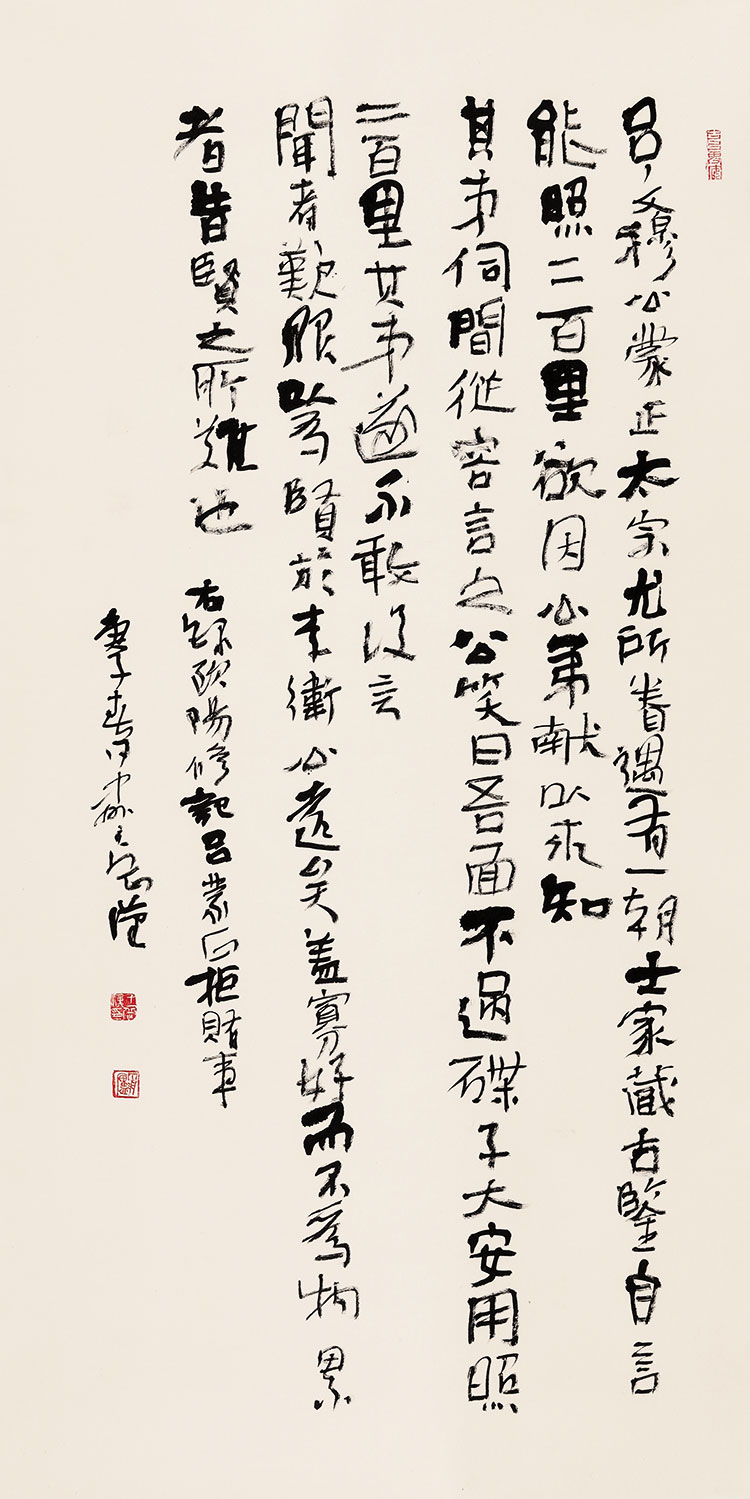 呂文穆公蒙正太宗尤所眷遇有一朝士家藏古鑒自言
能照二百里欲因公弟献以求知
其弟伺間從容言之公笑曰吾面不過碟子大安用照
二百里其弟遂不敢復言
聞者歎服以為賢於李衛公遠矣蓋寡好而不為物累
者昔賢之所難也
右錄欧陽修記呂蒙正拒賭事
庚子春日